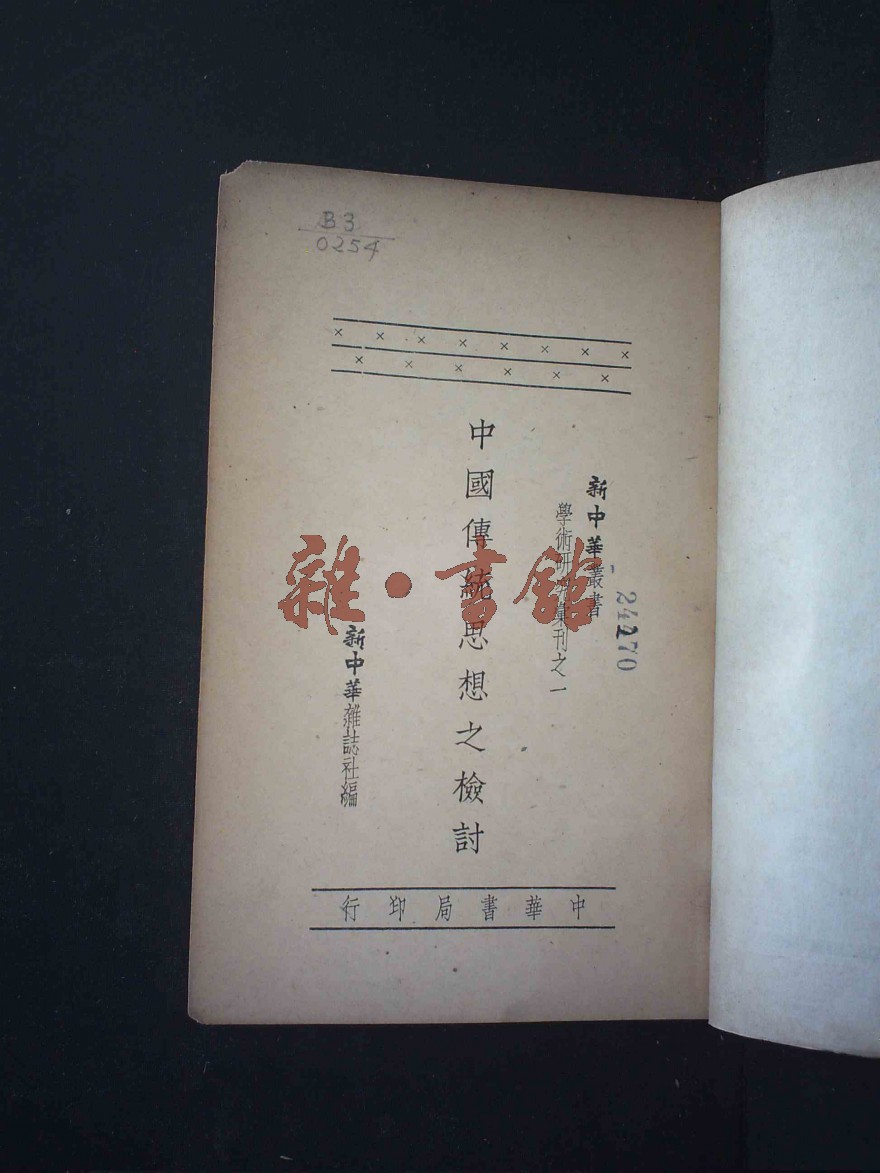 B3
0254
新中華叢書
學術研究彙刊之一
中國傳統思想之檢討
新中華雜誌社編
中華書局印行
雜·書館